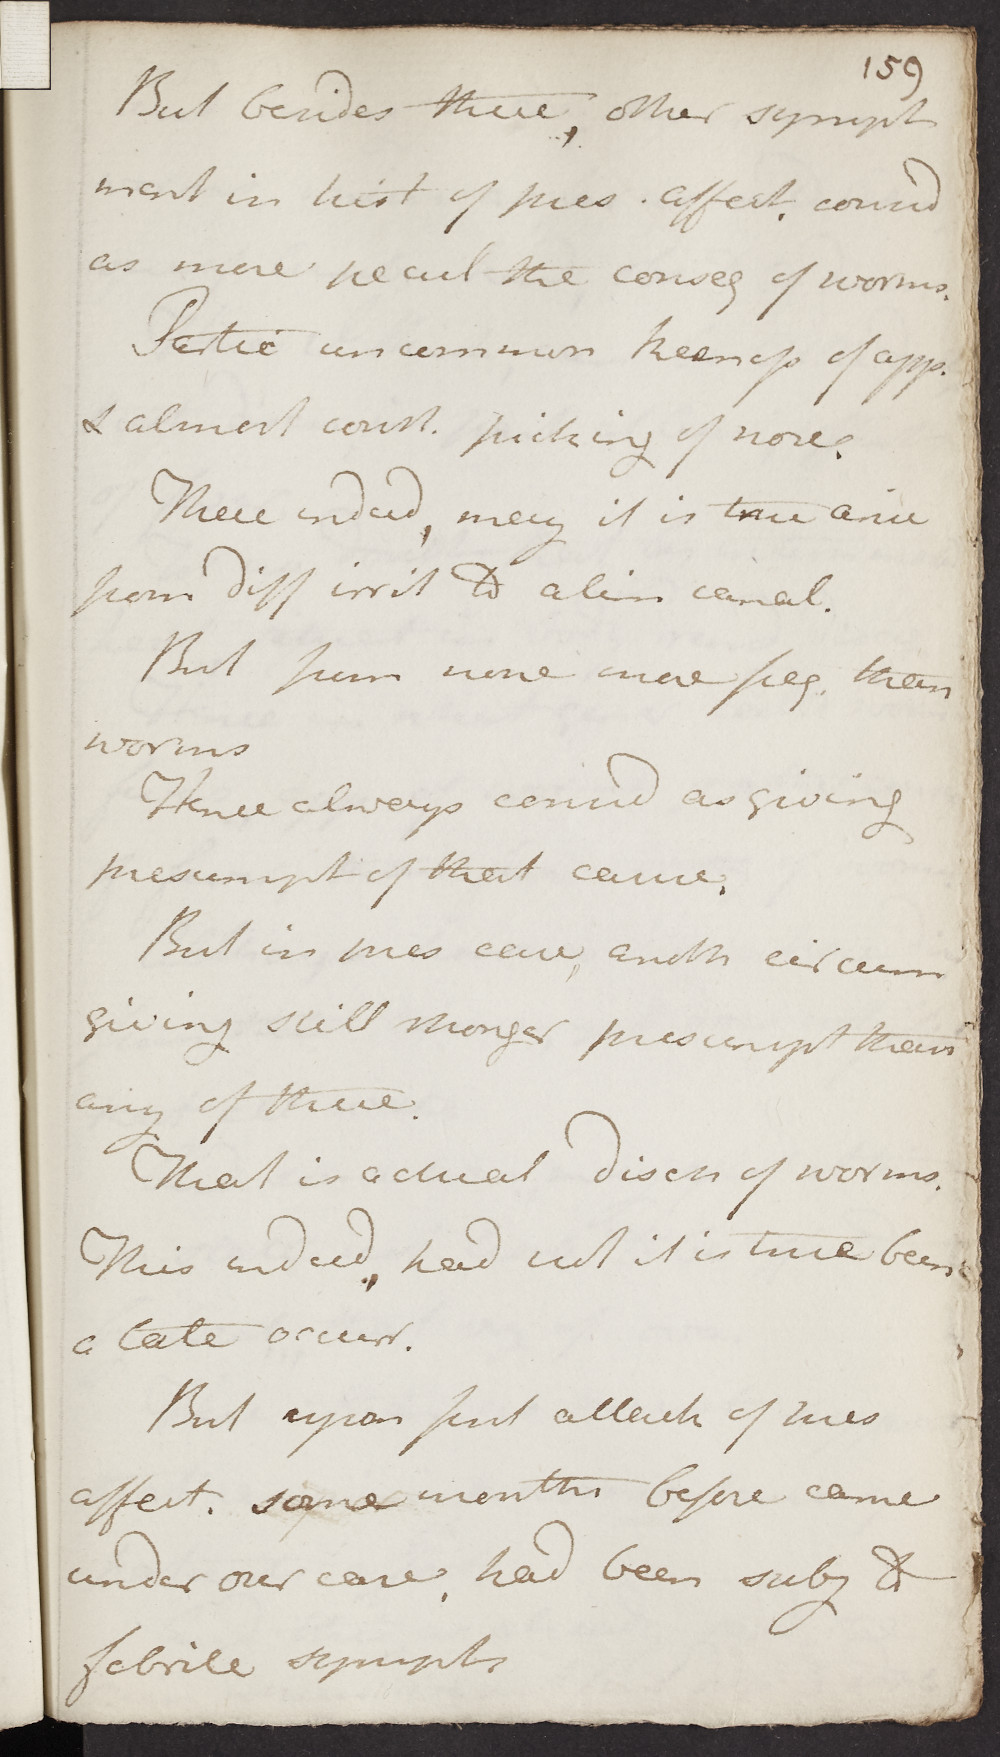 159
But besides these, other sympt
ment in hist of pres. affect. consid
as more pecul the conseq of worms.
Partic uncommon keenness of app.
& almost const. picking of nose.
These indeed, may it is true arise
from diff irrit to alim canal.
But from none more freq. than
worms
Hence always consid as giving
presumpt of that cause.
But in pres case, anoth circum
giving still stronger presumpt than
any of these.
That is actual disch of worms.
This indeed, had not it is true been
a late occurr.
But upon first attack of pres
affect. some months before came
under our care, had been subj to
febrile sympts